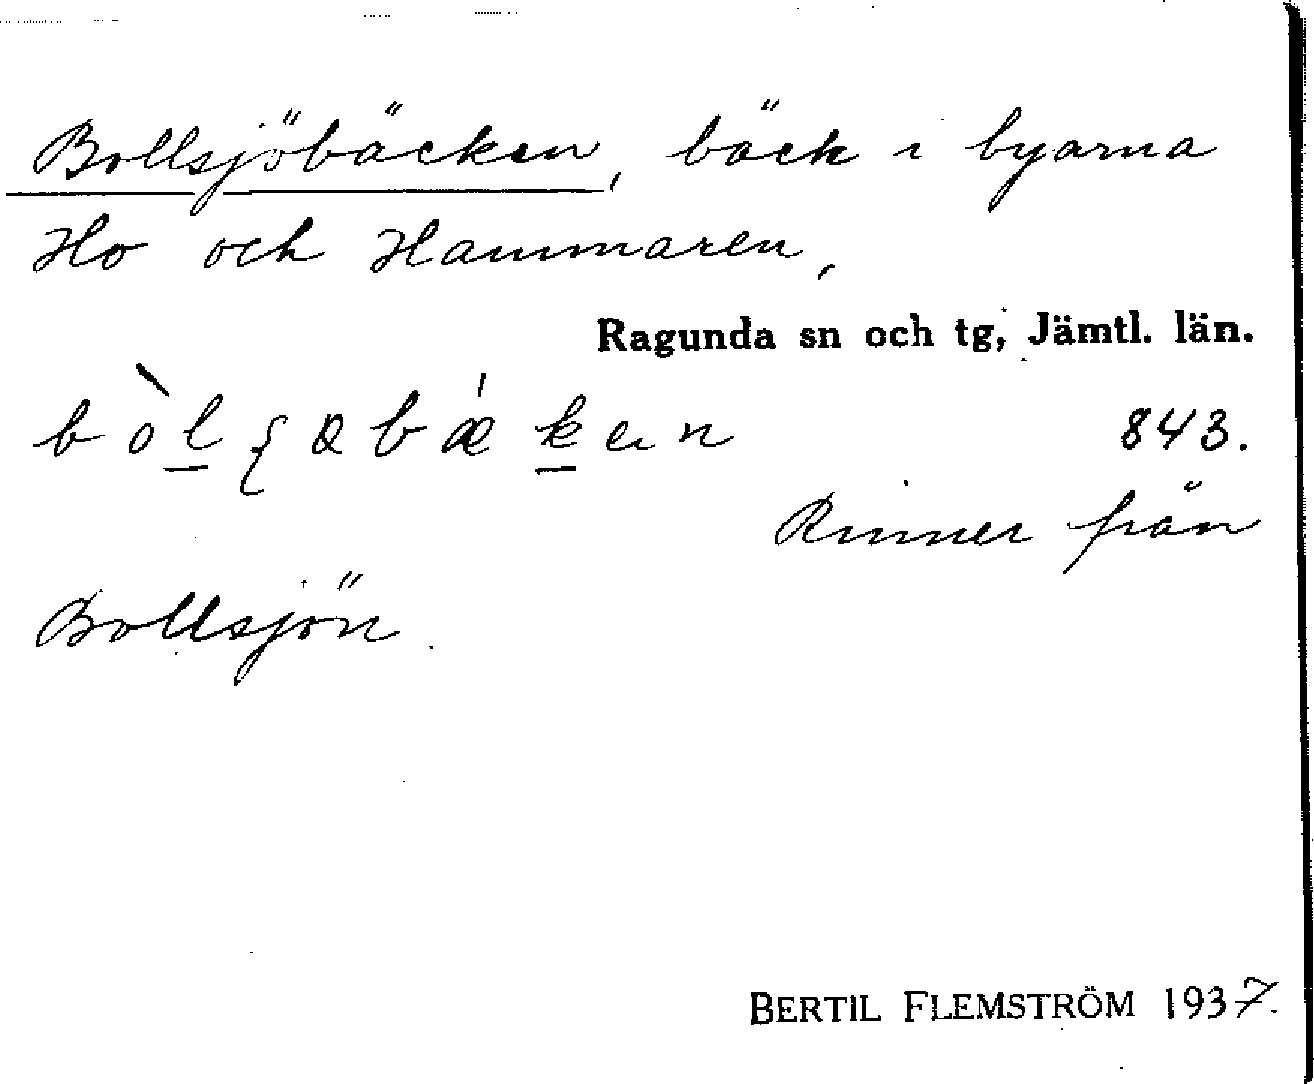 Bollsjöbäcken, bäck i byarna
Ho och Hammaren,
Ragunda sn och tg, Jämtl. län.
843.
Rinner från
Bollsjön.
BERTIL FLEMSTRÖM 1937.